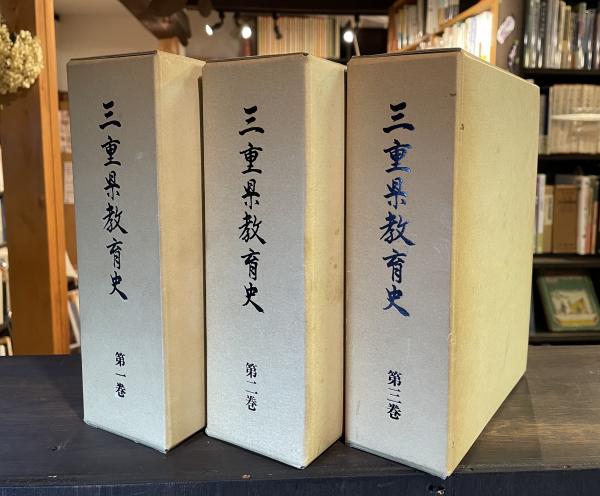 三重県教育史
第一巻
三重県教育史
第二巻
三重県教育史
第三巻